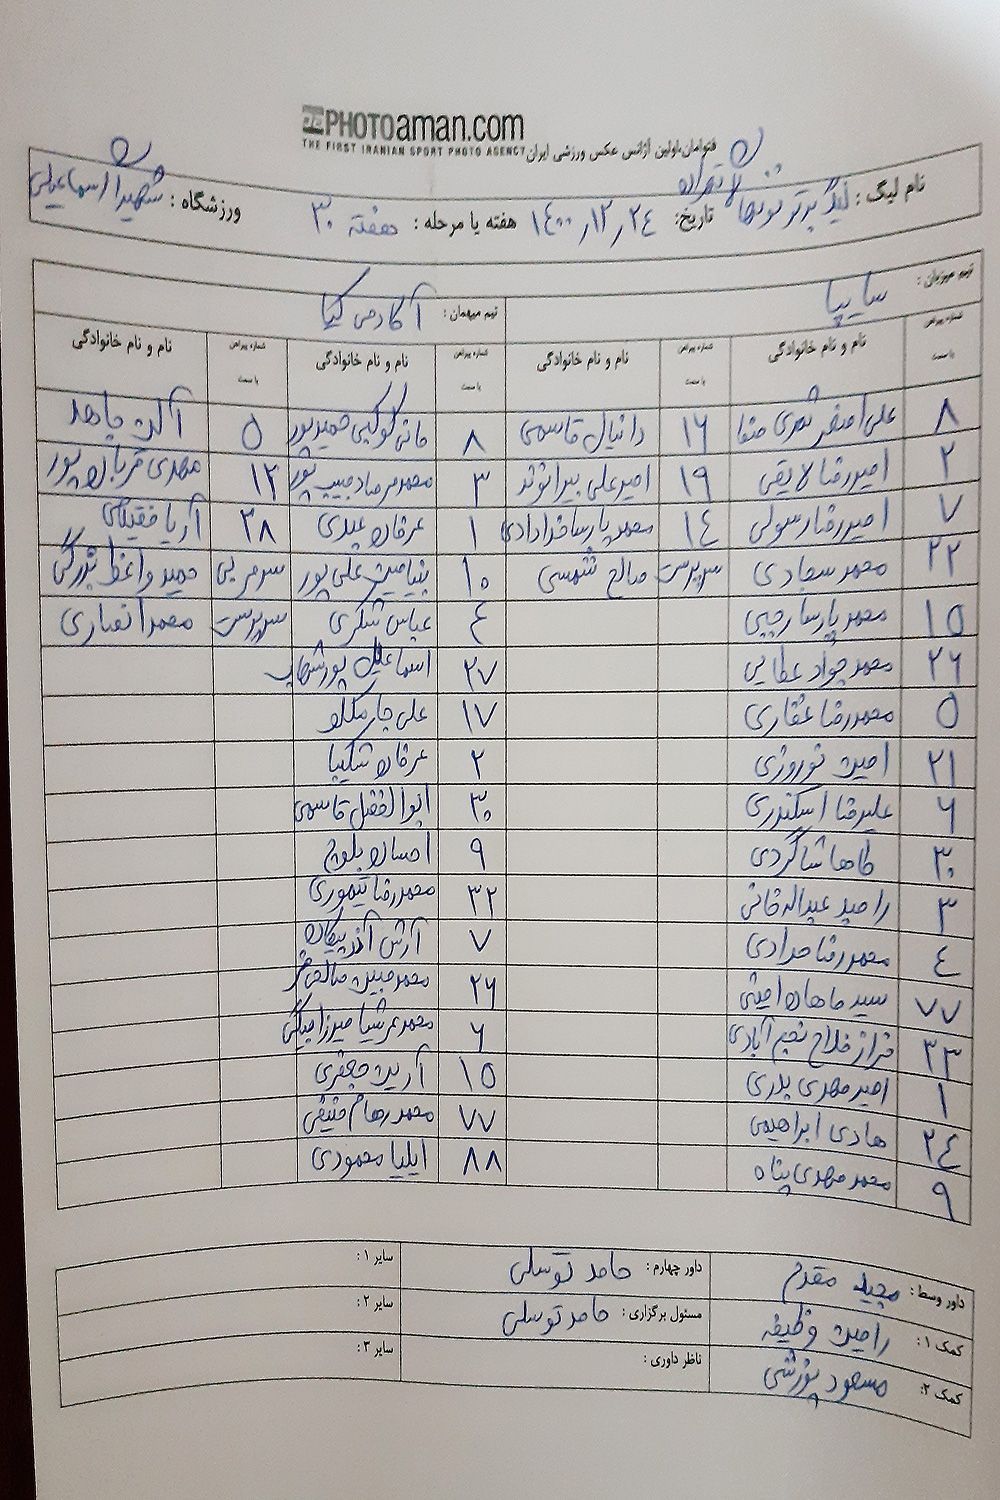 PHOTOaman.com
THE FIRST IRANIAN SPORT PHOTO AGENCY
فتوامان،اولین آژانس عکس ورزشی ایران
نام لیگ : لیگ برتر نونهالان تهران
تاریخ: ۱۴۰۰/۱۲/۲۴ هفته یا مرحله : هفته ۳۰ ورزشگاه : شهیدان اسماعیلی
تیم میزبان : سایپا تیم میهمان : آکادمی کیا
شماره پیراهن یا سمت نام و نام خانوادگی شماره پیراهن یا سمت نام و نام خانوادگی شماره پیراهن یا سمت نام و نام خانوادگی شماره پیراهن یا سمت نام و نام خانوادگی
۸ علی اصغر ۱۶ دانیال قاسمی ۸ مانی کوکبی حمیدپور ۵ آلن جاهد
۲ امیررضا لایقی ۱۹ امیرعلی بیرانوند ۳ محمدمرصاد حبیب پور ۱۲ مهدی قربان پور
۷ امیررضا رسولی ۱۴ محمدپارسا خدادادی ۱ عرفان عبدی ۳۸ آریا
۲۲ محمد سجادی سرپرست صالح شمسی ۱۰ بنیامین علی پور سرمربی حمید واعظ بزرگی
۱۵ محمدپارسا رجبی ۴ عباس شکری سرپرست محمد انصاری
۲۶ محمدجواد عطایی ۲۷ اسماعیل پورشهاب
۵ محمدرضا غفاری ۱۷ علی
۲۱ امین نوروزی ۲ عرفان شکیبا
۶ علیرضا اسکندری ۳۰ ابوالفضل قاسمی
۳۰ طاها شاگردی ۹ احسان بلوچ
۳ رامبد عبداله خانی ۳۲ محمدرضا تیموری
۴ محمدرضا مرادی ۷ آرش
۷۷ سید ماهان امینی ۲۶ محمدمبین
۳۳ فراز فلاح نجم آبادی ۶ محمدعرشیا میرزابیگی
۱ امیرمهدی بدری ۱۵ آرین جعفری
۲۴ هادی ابراهیمی ۷۷ محمدرهام حنیفی
۹ محمدمهدی پناه ۸۸ ایلیا محمودی
داور وسط : مجید مقدم داور چهارم : حامد توسلی سایر ۱ :
کمک ۱ : رامین وظیفه مسئول برگزاری : حامد توسلی سایر ۲ :
کمک ۲: مسعود پورشی ناظر داوری : سایر ۳ :